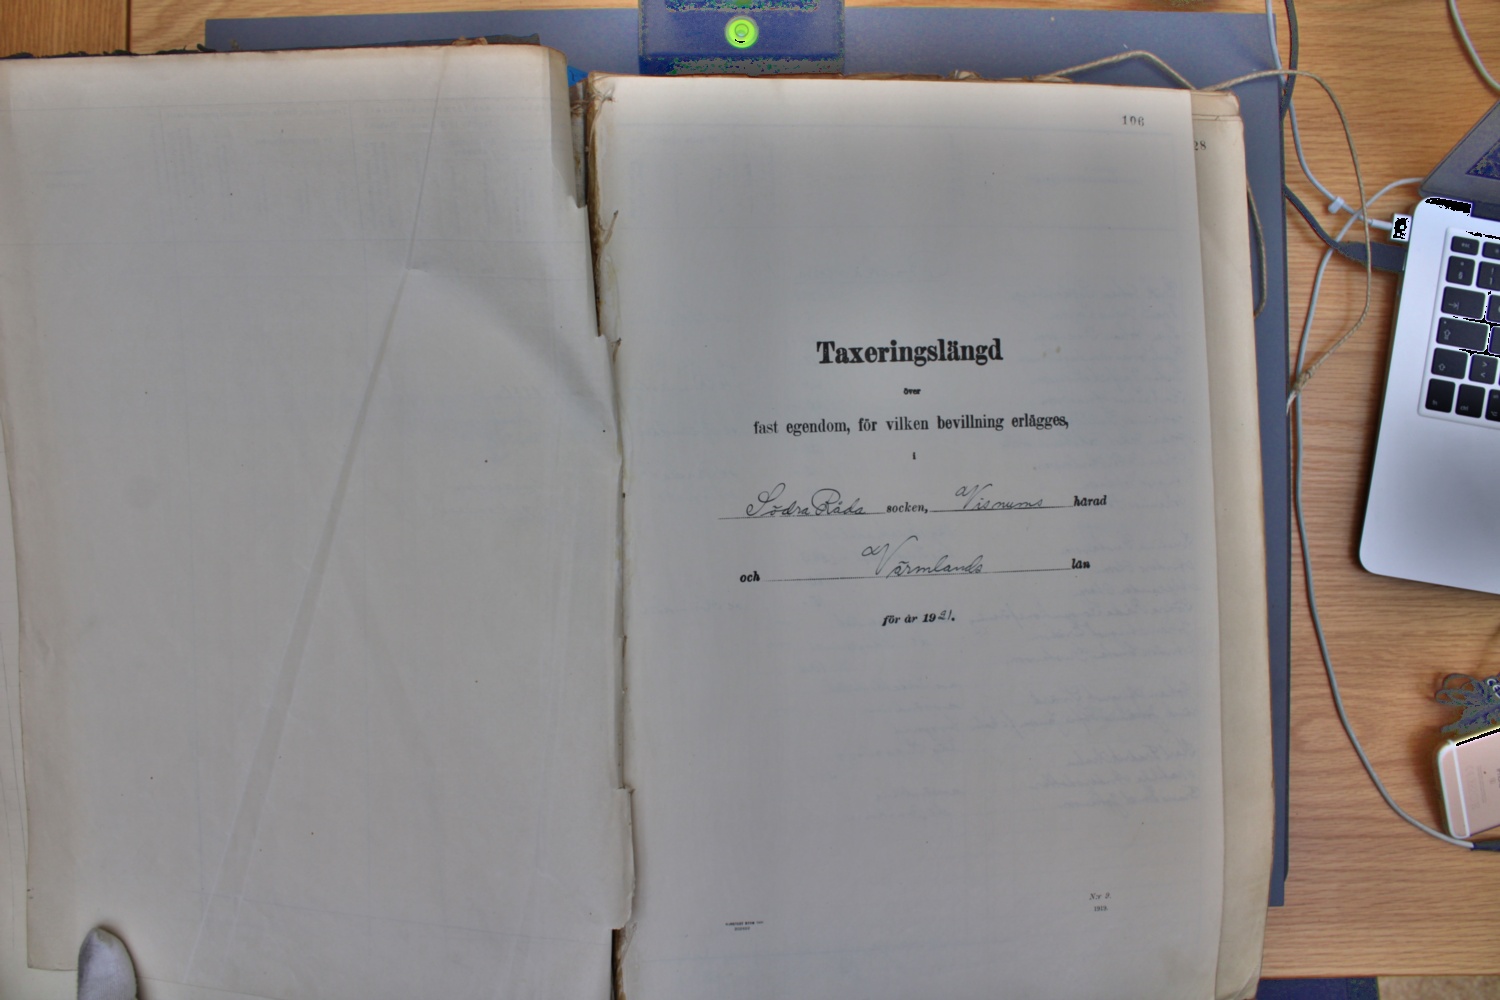 106
28
Taxeringslängd
över
fast egendom, för vilken bevillning erlägges,
i
Södra Råda socken, Visnums härad
och Värmlands län
för år 1921.
N:r 2.
1919.